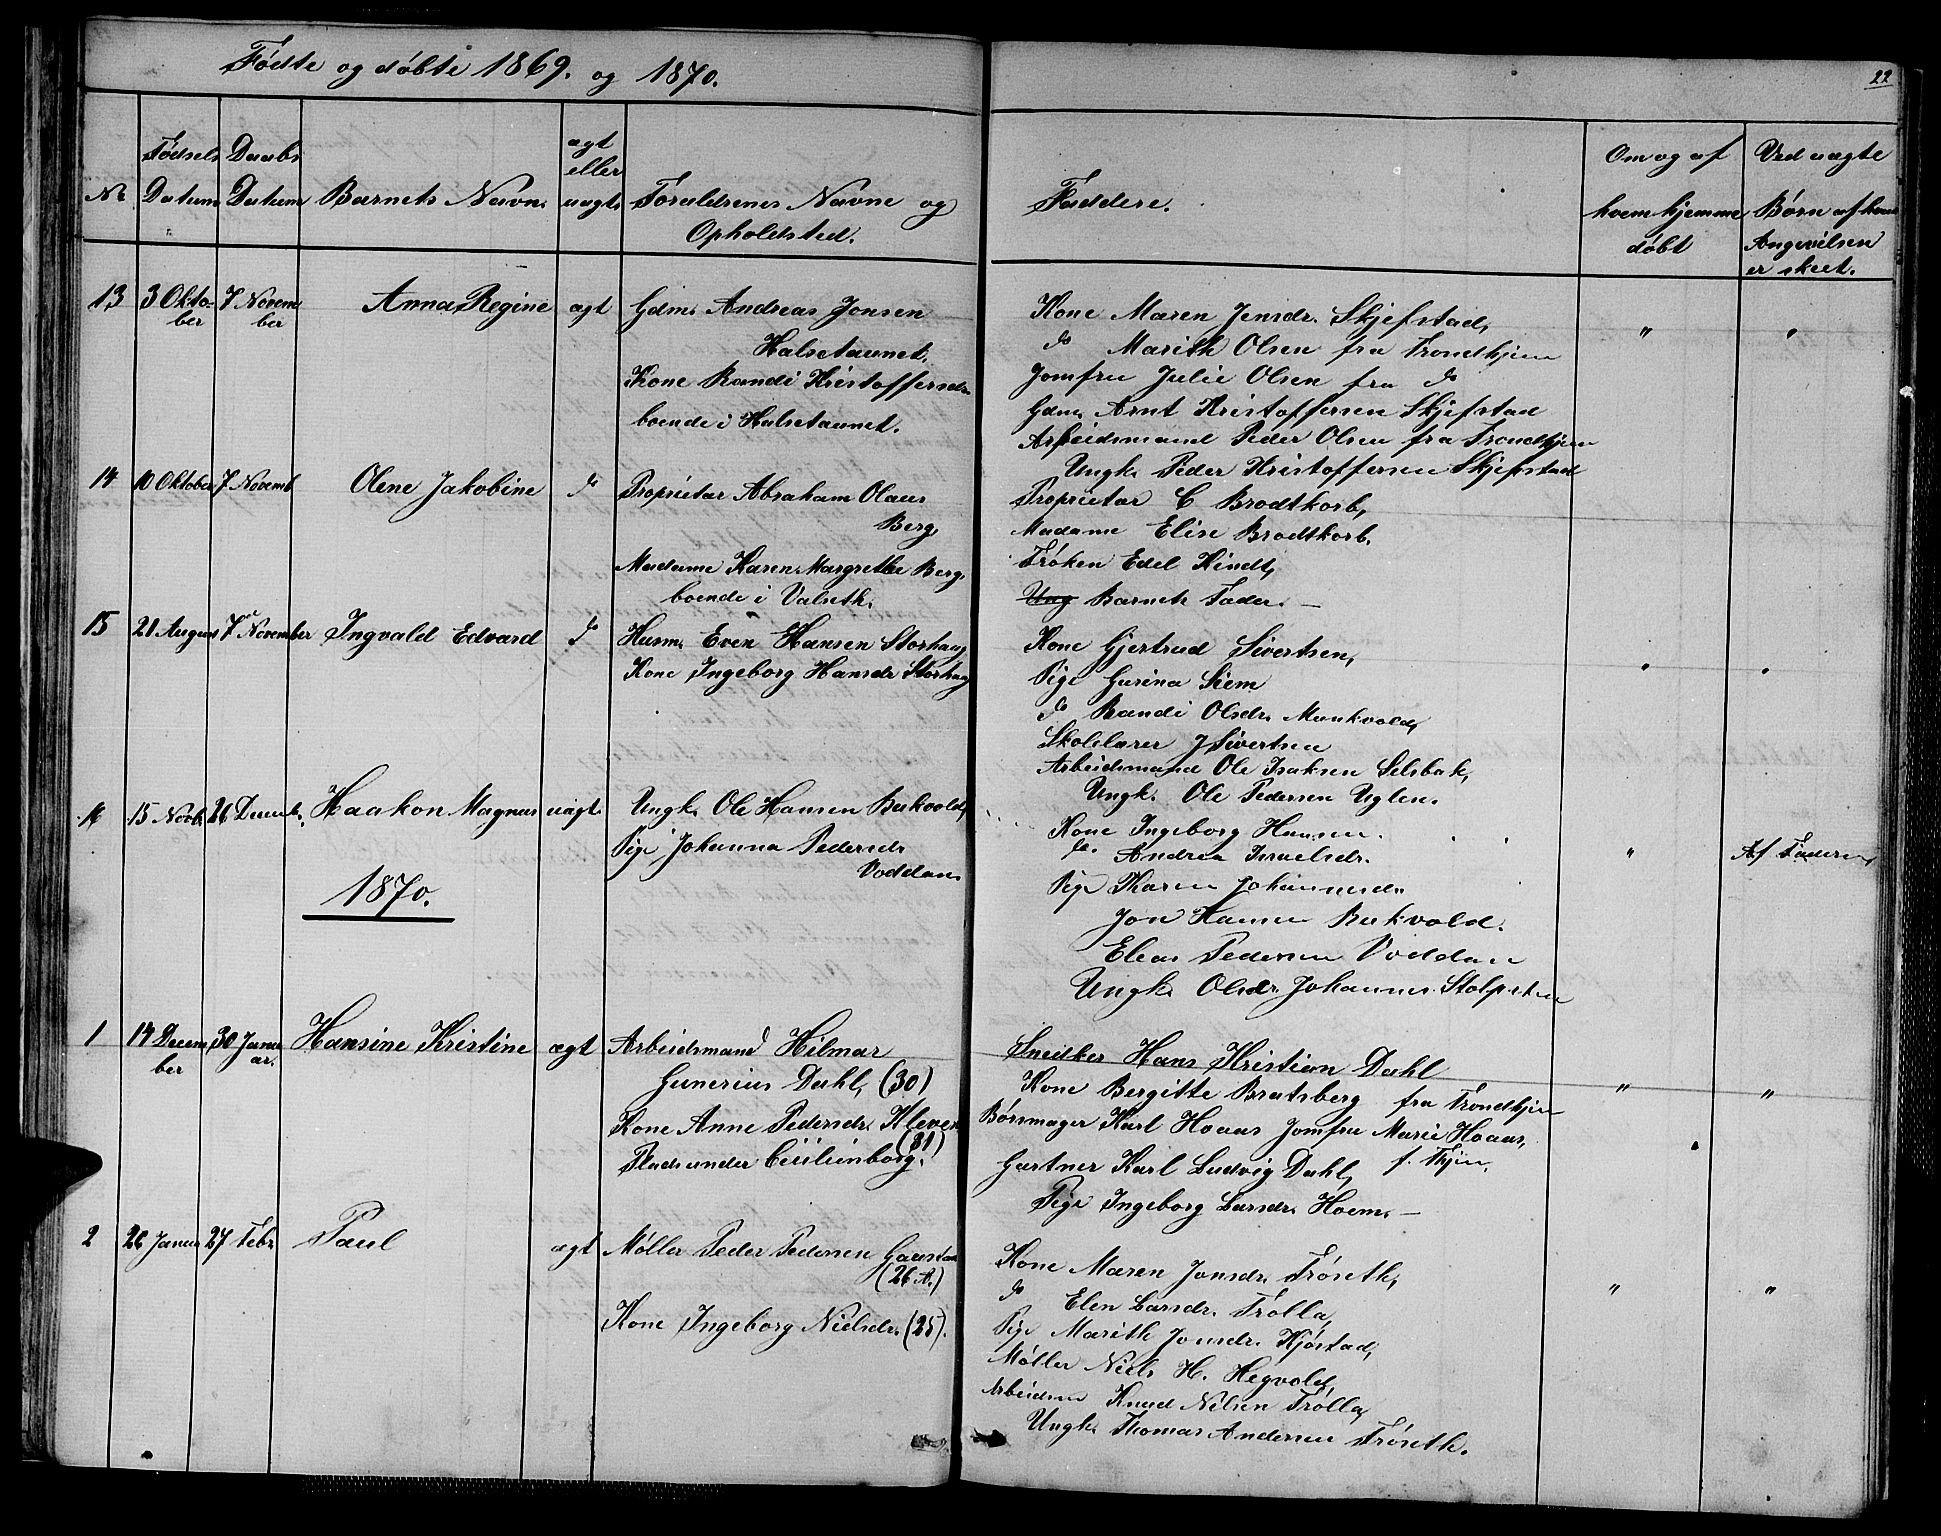 Fødte og døbte 1869. og 1870.
22
Nr
Fødsels Datum
Daabs Datum
Barnets Navn
ægt eller uægt.
Forældrenes Navne og Opholdsted.
Faddere.
Om og af hvem hjemme døbt
Ved uægte Børn af hvem Angivelsen er skeet.
13 3 Oktober 7 November Anna Regine ægt
Gdm. Andreas Jonsen
Halsetaunet.
Kone Randi Kristoffersdr.
boende i Halsetaunet.
Kone Maren Jensdr. Skjefstad,
do Marith Olsen fra Trondhjem
Jomfru Julie Olsen fra do
Gdm. Arnt Kristoffersen Skjefstad
Arbeidsmand Peder Olsen fra Trondhjem
Ungk. Peder Kristoffersen Skjefstad
" "
14 10 Oktober 7 Novemb Olene Jakobine do
Proprietær Abraham Olaus
Berg,
Madame Karen Margrethe Berg,
boende i Valseth.
Proprietær C Brodtkorb,
Madame Elise Brodtkorb.
Frøken Edel Kindt,
Ung Barnets Fader. —
15 21 August 7 November Ingvald Edvard do
Husm. Even Hansen Storhaug
Kone Ingeborg Hansdr Storhaug
Kone Gjertrud Sivertsen,
Pige Gurina Siem
do Randi Olsdr. Munkvold,
Skolelærer J Sivertsen
Arbeidsmand Ole Isaksen Selsbak,
Ungk. Ole Pedersen Uglen.
" "
16 15 Novb. 26 Decemb. Haakon Magnus uægt.
Ungk. Ole Hansen Bukvold,
Pige Johanna Pedersdr
Voddan.
Kone Ingeborg Hansen.
do. Andrea Israelsdr.
Pige Karen Johannesdr.
Jon Hansen Bukvold.
Eleas Pedersen Voddan
Ungk. Olsdr. Johannes Stolpsten
" Af Faderen,
1870.
1 14 December 30 Januar. Hansine Kristine ægt
Arbeidsmand Hilmar
Gunerius Dahl, (30)
Kone Anne Pedersdr. Kleven
(31)
Plads under Cicilienborg.
Snedker Hans Kristian Dahl
Kone Bergitte Bratsberg fra Trondhjem
Børsmager Karl Hoaas Jomfru Marie Hoaas,
Gartner Karl Ludvig Dahl, f. Thjem,
Pige Ingeborg Larsdr. Hoem. —
" "
2 26 Januar 27 Febr. Paul ægt
Møller Peder Pedersen
(26 A.)
Kone Ingeborg Nielsdr. (25).
Kone Maren Jonsdr. Frøseth,
do Elen Larsdr. Trolla,
Pige Marith Jonsdr. Kjøstad,
Møller Niels H. Hegvold,
Arbeidsm Knud Nilsen Trolla,
Ungk. Thomas Andersen Frøseth.
" "